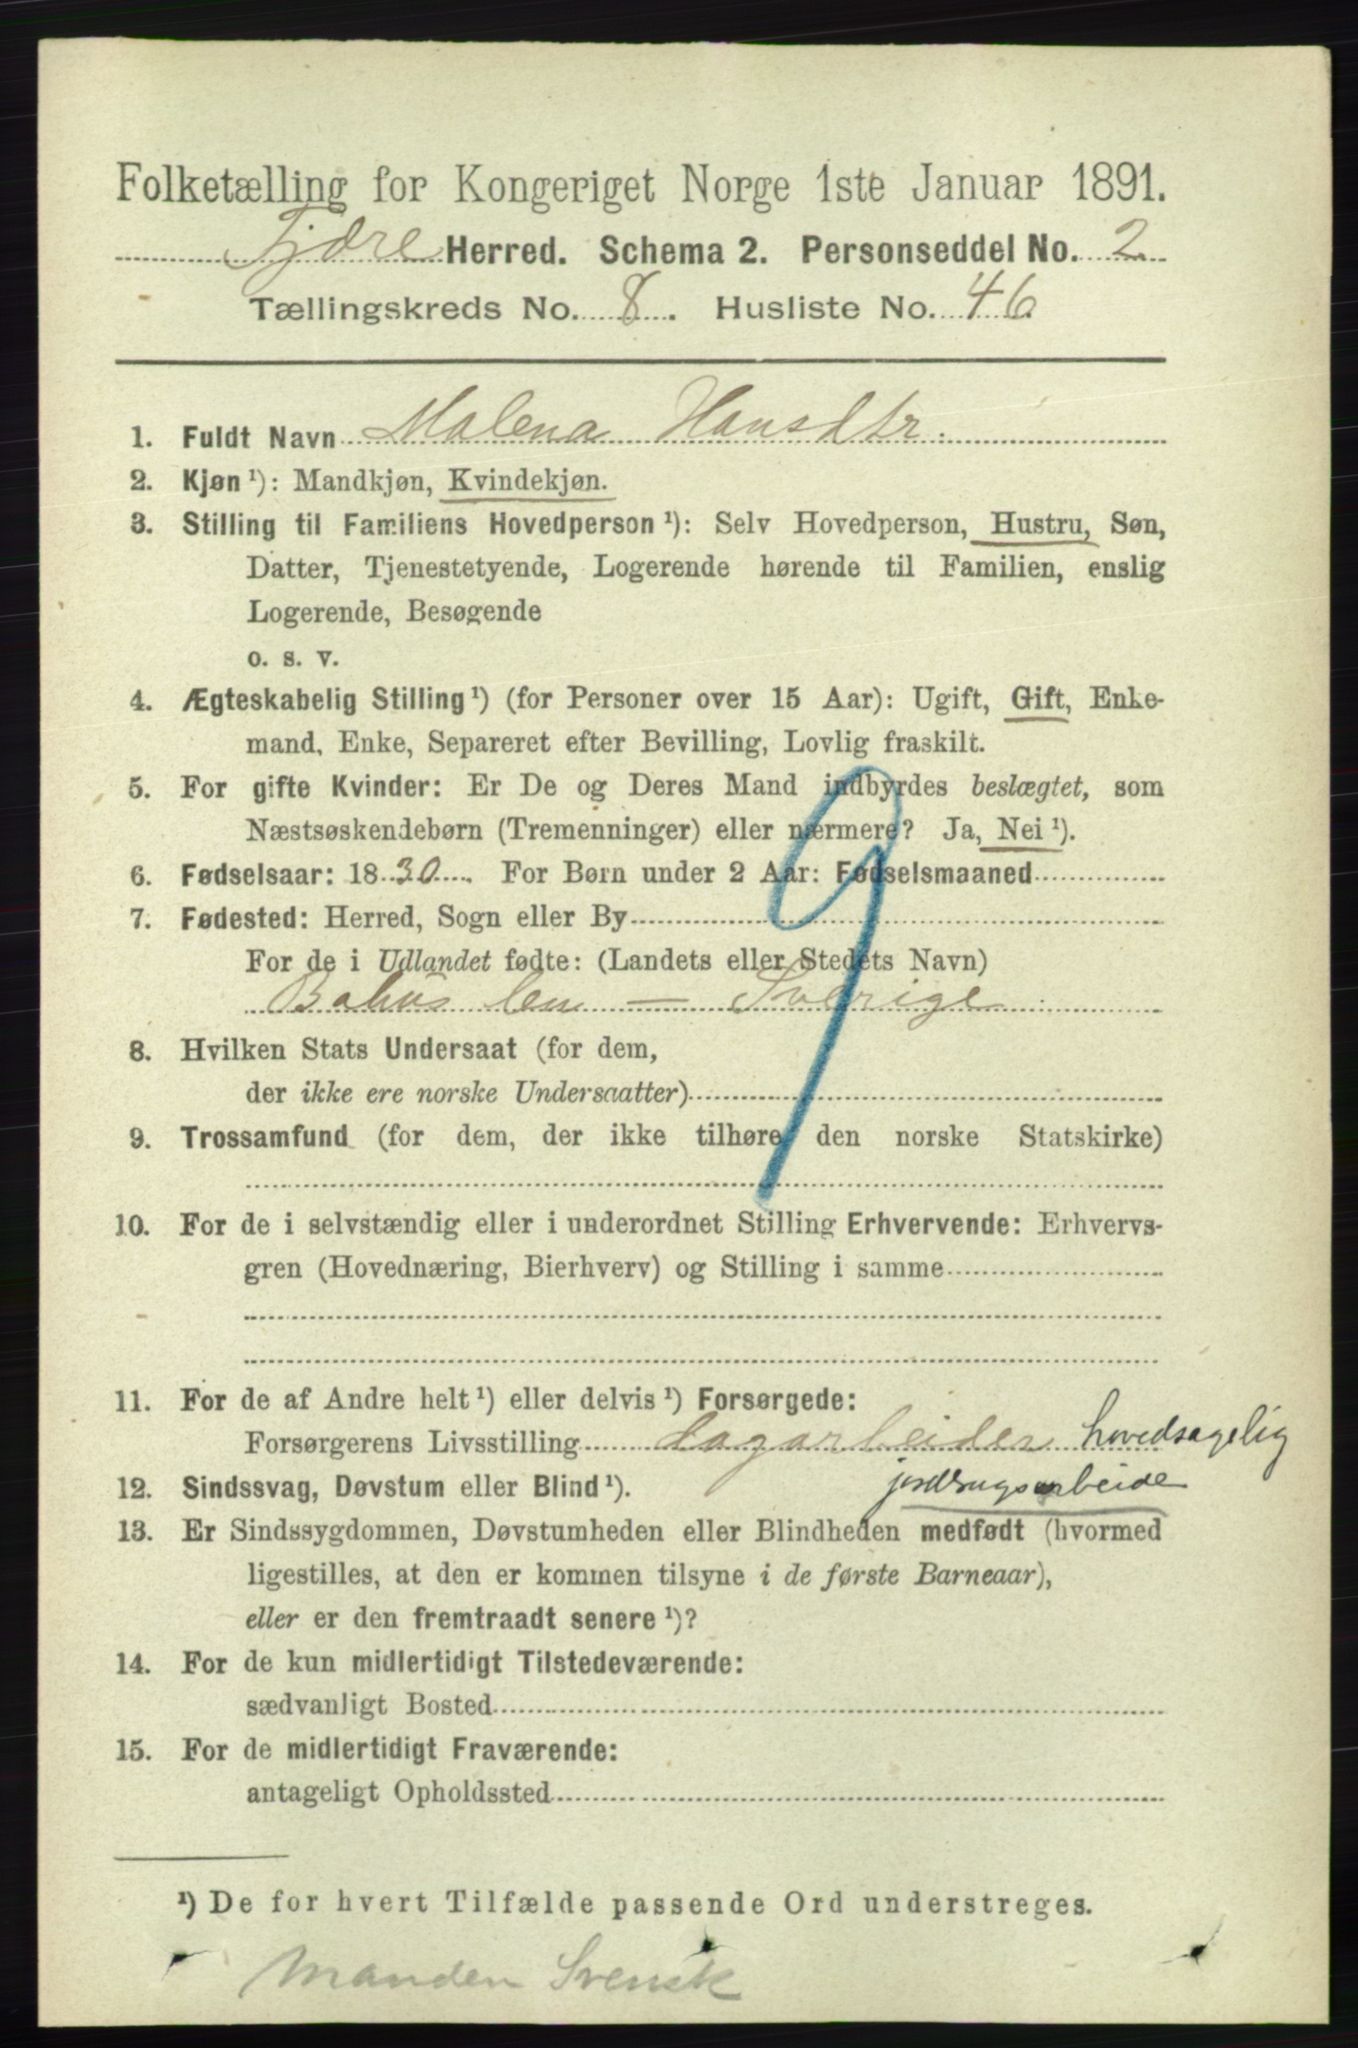 Folketælling for Kongeriget Norge 1ste Januar 1891.
Fjære Herred. Schema 2. Personseddel No. 2
Tællingskreds No. 8. Husliste No. 46
1. Fuldt Navn Malena Hansdtr.
2. Kjøn ¹): Mandkjøn, Kvindekjøn.
3. Stilling til Familiens Hovedperson ¹): Selv Hovedperson, Hustru, Søn,
Datter, Tjenestetyende, Logerende hørende til Familien, enslig
Logerende, Besøgende
o. s. v.
4. Ægteskabelig Stilling ¹) (for Personer over 15 Aar): Ugift, Gift, Enke-
mand, Enke, Separeret efter Bevilling, Lovlig fraskilt.
5. For gifte Kvinder: Er De og Deres Mand indbyrdes beslægtet, som
Næstsøskendebørn (Tremenninger) eller nærmere? Ja, Nei ¹).
6. Fødselsaar: 1830. For Børn under 2 Aar: Fødselsmaaned
7. Fødested: Herred, Sogn eller By
For de i Udlandet fødte: (Landets eller Stedets Navn)
Bahus len — Sverige
9
8. Hvilken Stats Undersaat (for dem,
der ikke ere norske Undersaatter)
9. Trossamfund (for dem, der ikke tilhøre den norske Statskirke)
10. For de i selvstændig eller i underordnet Stilling Erhvervende: Erhvervs-
gren (Hovednæring, Bierhverv) og Stilling i samme
11. For de af Andre helt ¹) eller delvis ¹) Forsørgede:
Forsørgerens Livsstilling dagarbeider hovedsagelig
jordbrugsarbeide
12. Sindssvag, Døvstum eller Blind ¹).
13. Er Sindssygdommen, Døvstumheden eller Blindheden medfødt (hvormed
ligestilles, at den er kommen tilsyne i de første Barneaar),
eller er den fremtraadt senere ¹)?
14. For de kun midlertidigt Tilstedeværende:
sædvanligt Bosted
15. For de midlertidigt Fraværende:
antageligt Opholdssted
¹) De for hvert Tilfælde passende Ord understreges.
Manden Svensk